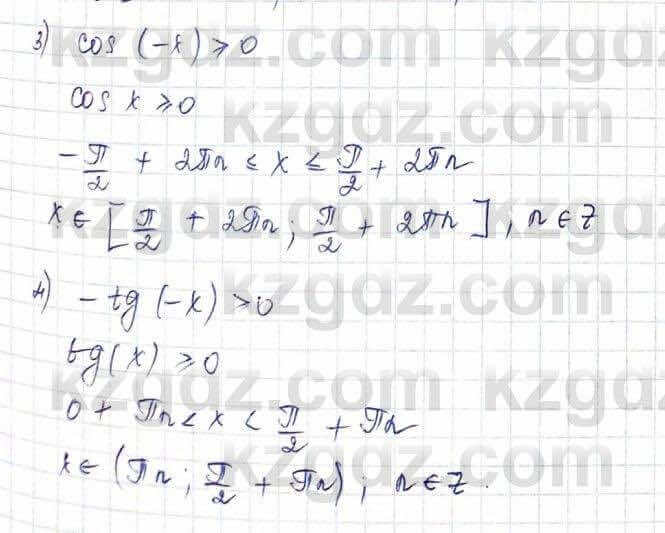 3) cos (-x) ≥ 0
cos x ≥ 0
-π/2 + 2πn ≤ x ≤ π/2 + 2πn
x ∈ [π/2 + 2πn; π/2 + 2πn], n ∈ Z
4) -tg (-x) > 0
tg(x) ≥ 0
0 + πn < x < π/2 + πn
x ∈ (πn; π/2 + πn); n ∈ Z.
kzgdz.com
kzgdz.com
kzgdz.com
kzgdz.com
kzgdz.com